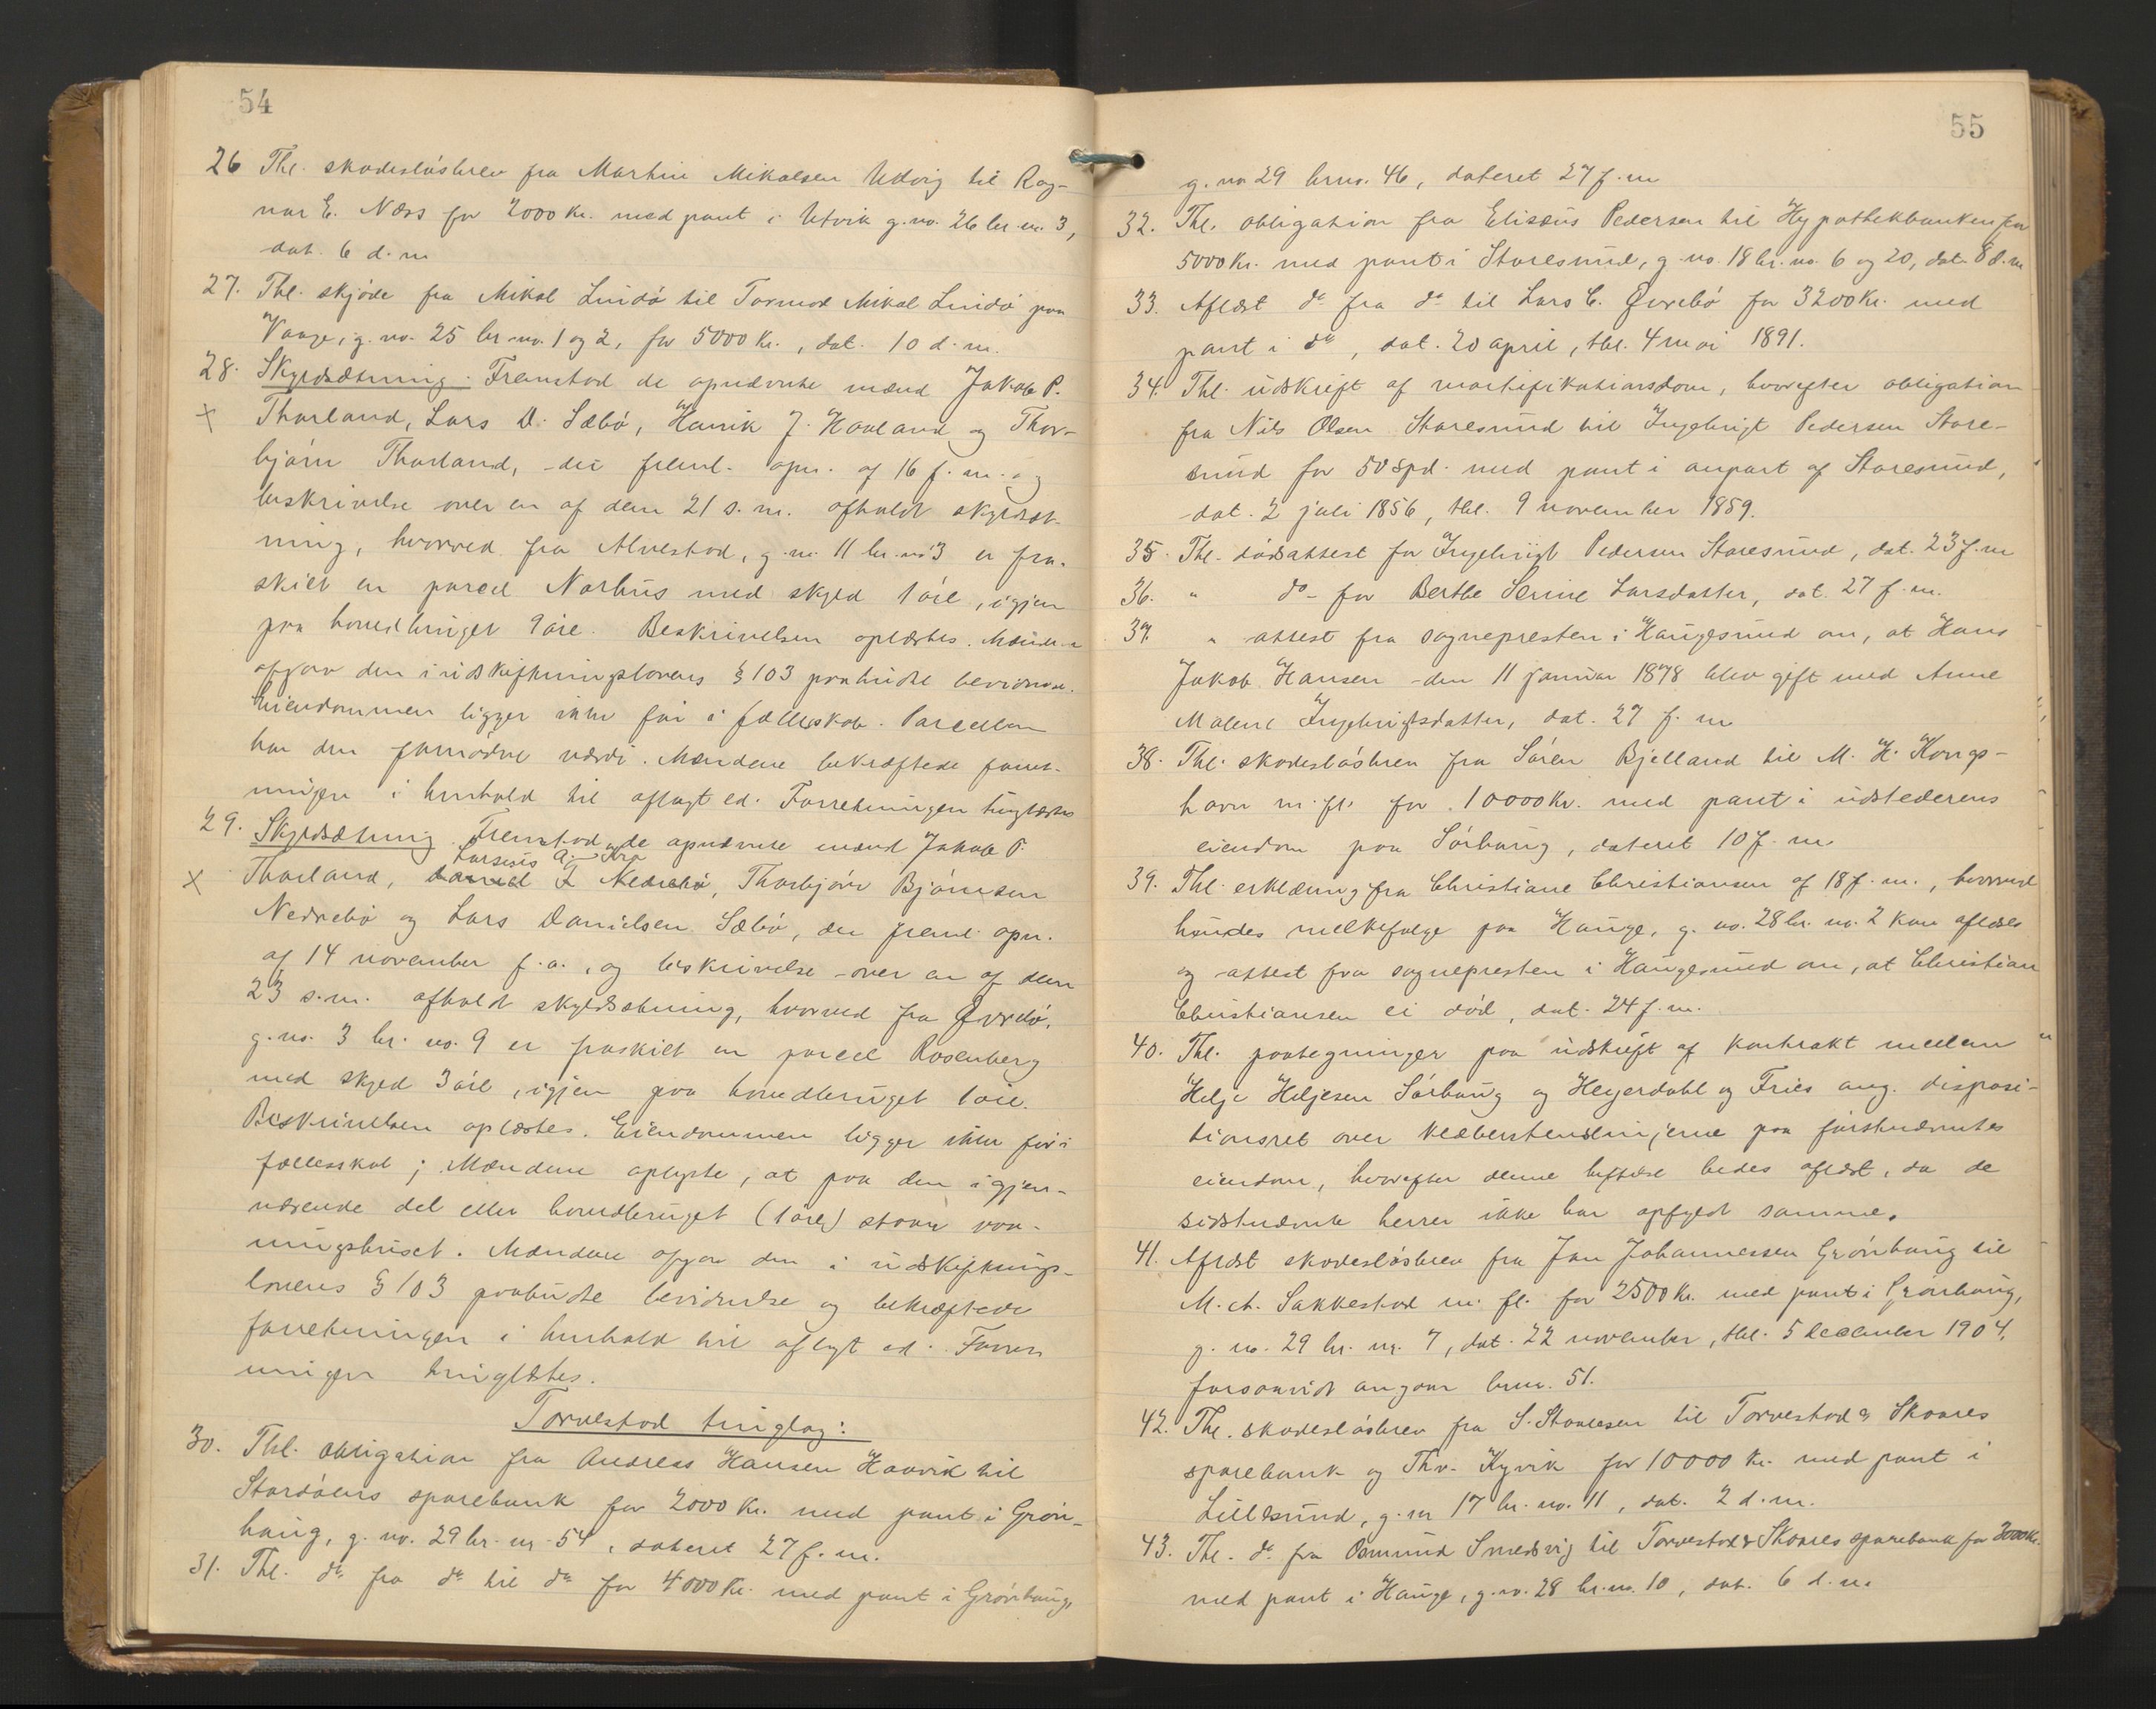 54
26 Thl. skadesløsbrev fra Martin Mikalsen Utvig til Rag-
nar E. Næss for 2000 Kr. med pant i Utvik g.no. 26 br.no. 3,
dat. 6 d.m
27. Thl. skjøde fra Mikal Lindø til Tormod Mikal Lindø paa
Vaage, g.no. 25 br.no. 1 og 2, for 5000 Kr., dat. 10 d.m.
28. Skyldsætning. Fremstod de opnævnte mænd Jakob P.
× Thorland, Lars D. Sæbø, Henrik J. Havland og Thor-
bjørn Thorland, der freml. opn. af 16 f.m. og
beskrivelse over en af dem 21 s.m. afholdt skyldsæt-
ning, hvorved fra Alvestad, g.no. 11 br.no 3 er fra-
skilt en parcel Norhus med skyld 1 øre, igjen
paa hovedbruget 9 øre. Beskrivelsen oplæstes. Mændene
afgav den i udskiftningslovens § 103 paabudte bevidnelse.
Eiendommen ligger ikke før i fællesskab. Parcellen
har den fornødne værdi. Mændene bekræftede forret-
ningen i henhold til aflagt ed. Forretningen tinglæstes
29. Skyldsætning. Fremstod de opnævnte mænd Jakob P.
Larsens A.
× Thorland, Daniel T Nedrebø, Thorbjørn Bjørnsen
Nedrebø og Lars Danielsen Sæbø, der freml. opn.
af 14 november f.a., og beskrivelse over en af dem
23 s.m. afholdt skyldsætning, hvorved fra Øvrebø,
g.no. 3 br.no. 9 er fraskilt en parcel Rosenberg
med skyld 3 øre, igjen paa hovedbruget 1 øre.
Beskrivelsen oplæstes. Eiendommen ligger ikke før i
fællesskab; Mændene oplyste, at paa den igjen-
værende del eller hovedbruget (1 øre) staar vaa-
ningshuset. Mændene afgav den i udskiftnings-
lovens § 103 paabudte bevidnelse og bekræftede
forretningen i henhold til aflagt ed. Forret-
ningen tinglæstes.
Torvestad tinglag:
30. Thl. obligation fra Andreas Hansen Haavik til
Stordøens sparebank for 2000 Kr. med pant i Grøn-
haug, g.no. 29 br.no. 54, dateret 27 f.m.
31. Thl. do fra do til do for 4000 Kr. med pant i Grønhaug,
55
g.no 29 brno. 46, dateret 27 f.m
32. Thl. obligation fra Elisæus Pedersen til Hypothekbanken for
5000 Kr. med pant i Storesund, g.no. 18 br.no. 6 og 20, dat. 8 d.m
33. Aflæst do fra do til Lars C. Øvrebø for 3200 Kr. med
pant i do, dat. 20 april, thl. 4 mai 1891.
34. Thl. udskrift af mortifikationsdom, hvorefter obligation
fra Nils Olsen Storesund til Ingebrigt Pedersen Store-
sund for 50 Spd. med pant i anpart af Storesund,
dat. 2 juli 1856, thl. 9 november 1859.
35. Thl. dødsattest for Ingebrigt Pedersen Storesund, dat. 23 f.m
36. " do for Berthe Serine Larsdatter, dat. 27 f.m.
37. " attest fra sognepresten i Haugesund om, at Hans
Jakob Hansen den 11 januar 1878 blev gift med Anne
Malene Ingebrigtsdatter, dat. 27 f.m
38. Thl. skadesløsbrev fra Søren Bjelland til M. H. Kongs-
havn m.fl. for 10000 Kr. med pant i udstederens
eiendom paa Sørhaug, dateret 10 f.m.
39. Thl. erklæring fra Christiane Christiansen af 18 f.m., hvorved
hendes melkefolge paa Hauge, g.no. 28 br.no. 2 kan aflæses
og attest fra sognepresten i Haugesund om, at Christian
Christiansen ei død, dat. 24 f.m.
40. Thl. paategninger paa udskrift af kontrakt mellem
Helje Heljesen Sørhaug og Heyerdahl og Fries ang. disposi-
tionsret over kleberstenslinjerne paa førstnævntes
eiendom, hvorefter denne heftelse bedes aflæst, da de
sidstnævnte herrer ikke har opfyldt samme.
41. Aflæst skadesløsbrev fra Jan Johannessen Grønhaug til
M. A. Sakkestad m.fl. for 2500 Kr. med pant i Grønhaug,
g.no. 29 br.no. 7, dat. 22 november, thl. 5 december 1904,
forsaavidt angaar brno. 51.
42. Thl. skadesløsbrev fra S. Staalesen til Torvestad & Skaares
sparebank og Thv. Kyvik for 10000 Kr. med pant i
Lillesund, g.no 17 br.no. 11, dat. 2 d.m.
43. Thl. do fra Osmund Smedsvig til Torvestad & Skaares sparebank for 3000 Kr.
med pant i Hauge, g.no. 28 br.no. 10, dat. 6 d.m.